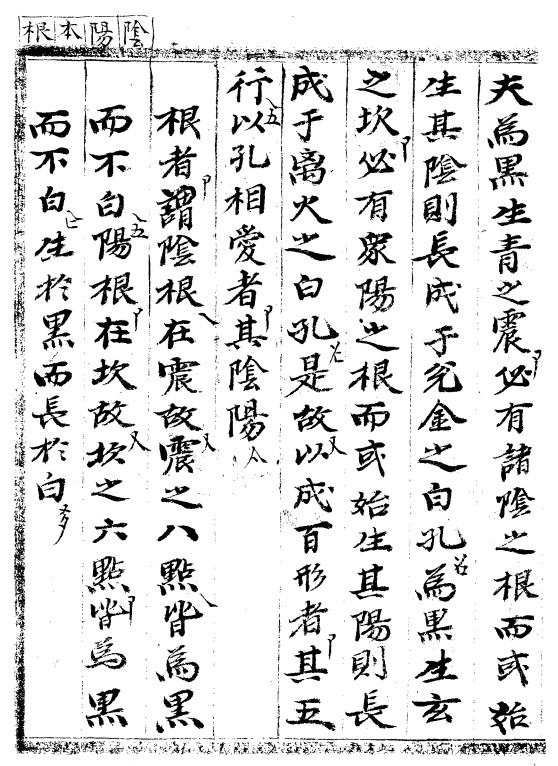 陰陽本根
夫為黑生青之震必有諸陰之根而或始
生其陰則長成于兌金之白孔為黑生玄
之坎必有衆陽之根而或始生其陽則長
成于离火之白孔是故以成百形者其五
行以孔相愛者其陰陽
根者謂陰根在震故震之八點皆為黑
而不白陽根在坎故坎之六點皆為黑
而不白生於黑而長於白